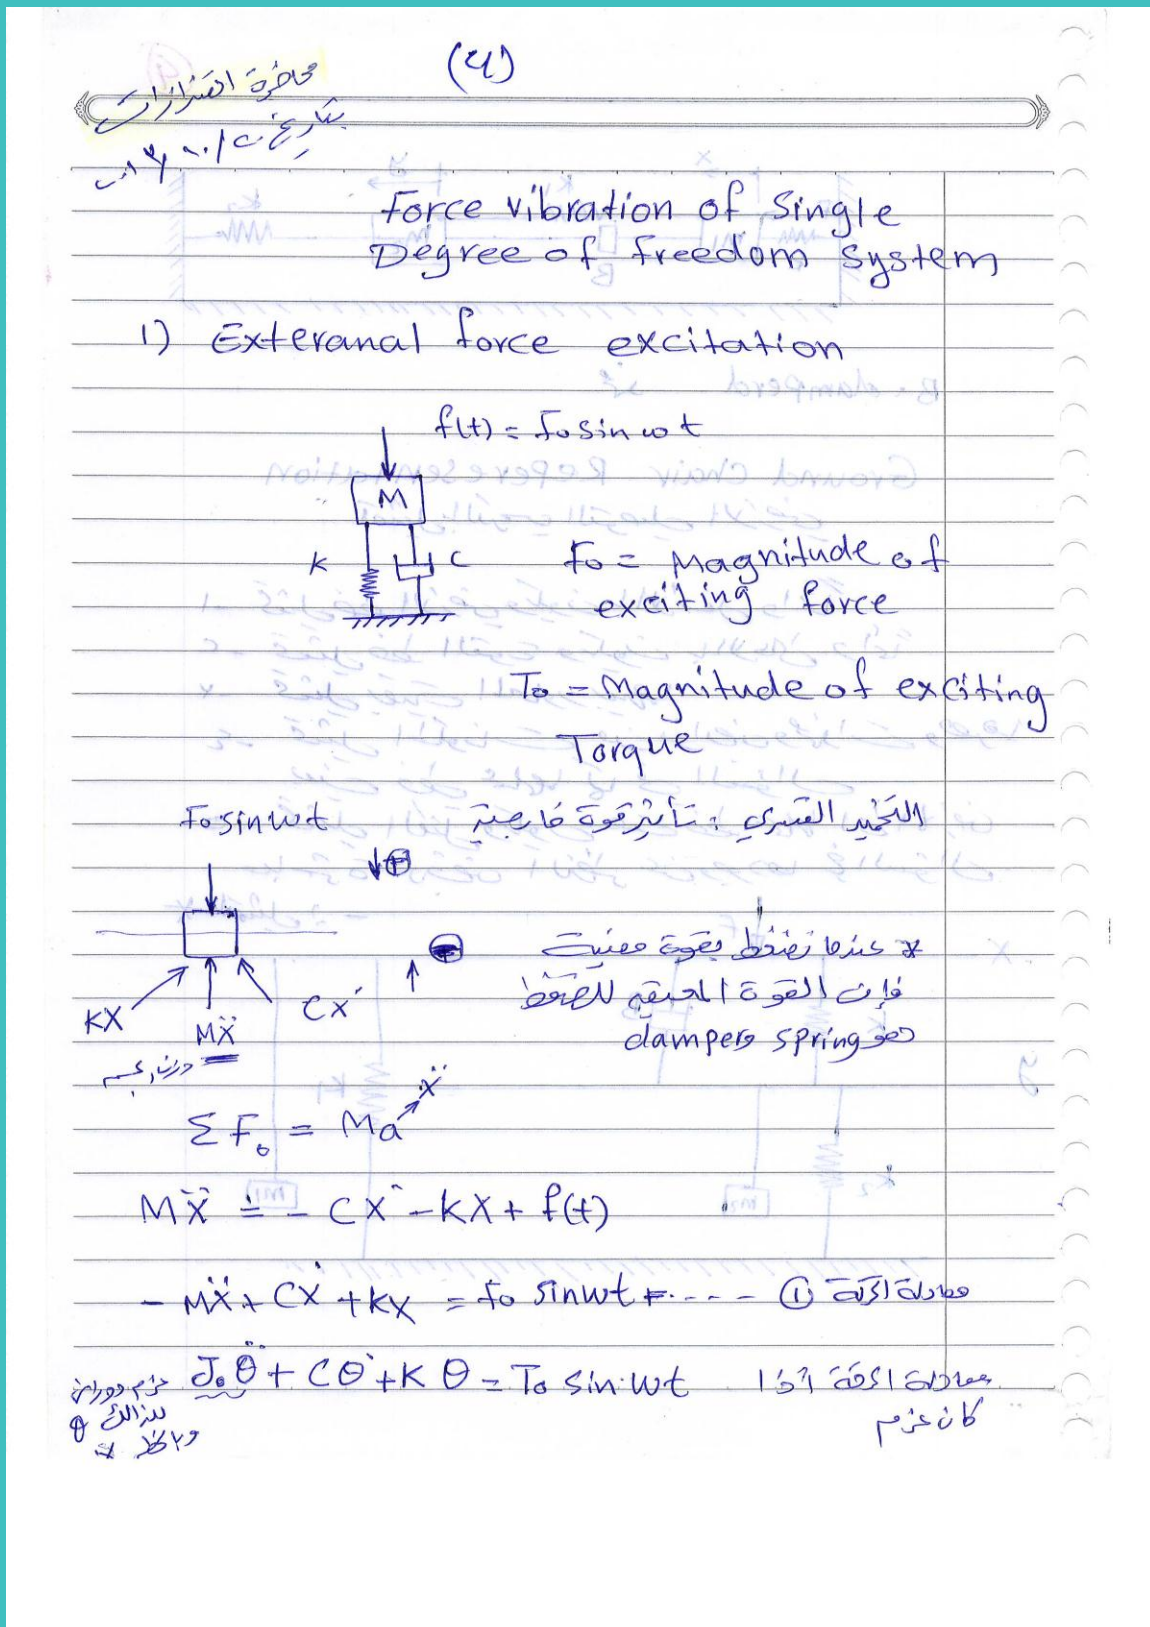 (4)
محاضرة اهتزازات
بتاريخ
Force vibration of Single
Degree of freedom system
1) Exteranal force excitation
f(t) = fo sin wt
M
K
C
Fo = Magnitude of
exciting force
To = Magnitude of exciting
Torque
التخميد القسري : تأثير قوة خارجية
Fo sin wt
↓⊕
* عندما نضغط بقوة معينة
فإن القوة المعيقه للضغط
damper spring
KX
MẌ
CẊ
ΣF₀ = Ma
Ẍ
MẌ = - CẊ - KX + f(t)
- MẌ + CẊ + KX = fo sin wt ---- ① معادلة الحركة
J₀θ̈ + Cθ̇ + Kθ = To sin wt معادلة الحركة اذا
كان عزم